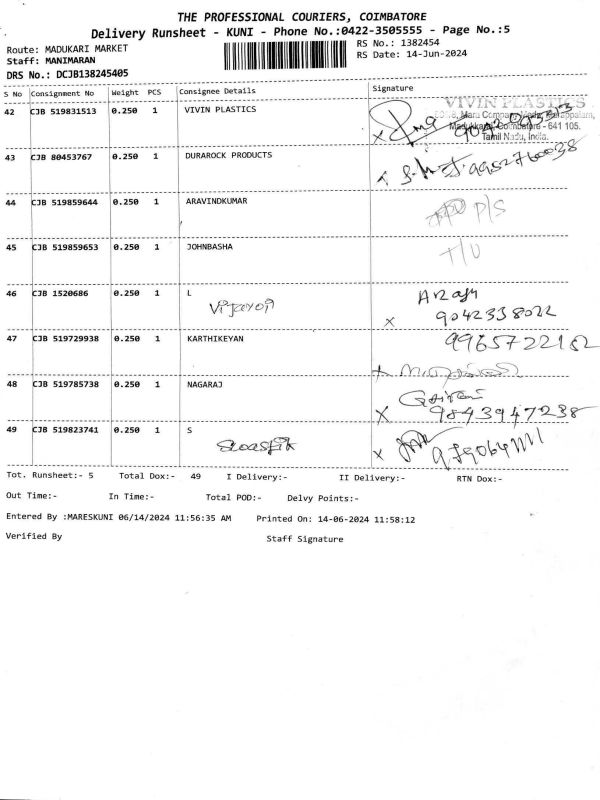 THE PROFESSIONAL COURIERS, COIMBATORE
Delivery Runsheet - KUNI - Phone No.:0422-3505555 - Page No.:5
Route: MADUKARI MARKET
RS No.: 1382454
Staff: MANIMARAN
RS Date: 14-Jun-2024
DRS No.: DCJB138245405
S No Consignment No Weight PCS Consignee Details Signature
42 CJB 519831513 0.250 1 VIVIN PLASTICS
VIVIN PLASTICS
Madukkarai, Coimbatore - 641 105.
Tamil Nadu, India.
43 CJB 80453767 0.250 1 DURAROCK PRODUCTS
x 9952760038
44 CJB 519859644 0.250 1 ARAVINDKUMAR P/S
45 CJB 519859653 0.250 1 JOHNBASHA T/U
46 CJB 1520686 0.250 1 L
x 9042338022
47 CJB 519729938 0.250 1 KARTHIKEYAN 9965722152
x
48 CJB 519785738 0.250 1 NAGARAJ
x 9843947238
49 CJB 519823741 0.250 1 S
Swastik x
Tot. Runsheet:- 5 Total Dox:- 49 I Delivery:- II Delivery:- RTN Dox:-
Out Time:- In Time:- Total POD:- Delvy Points:-
Entered By :MARESKUNI 06/14/2024 11:56:35 AM Printed On: 14-06-2024 11:58:12
Verified By Staff Signature